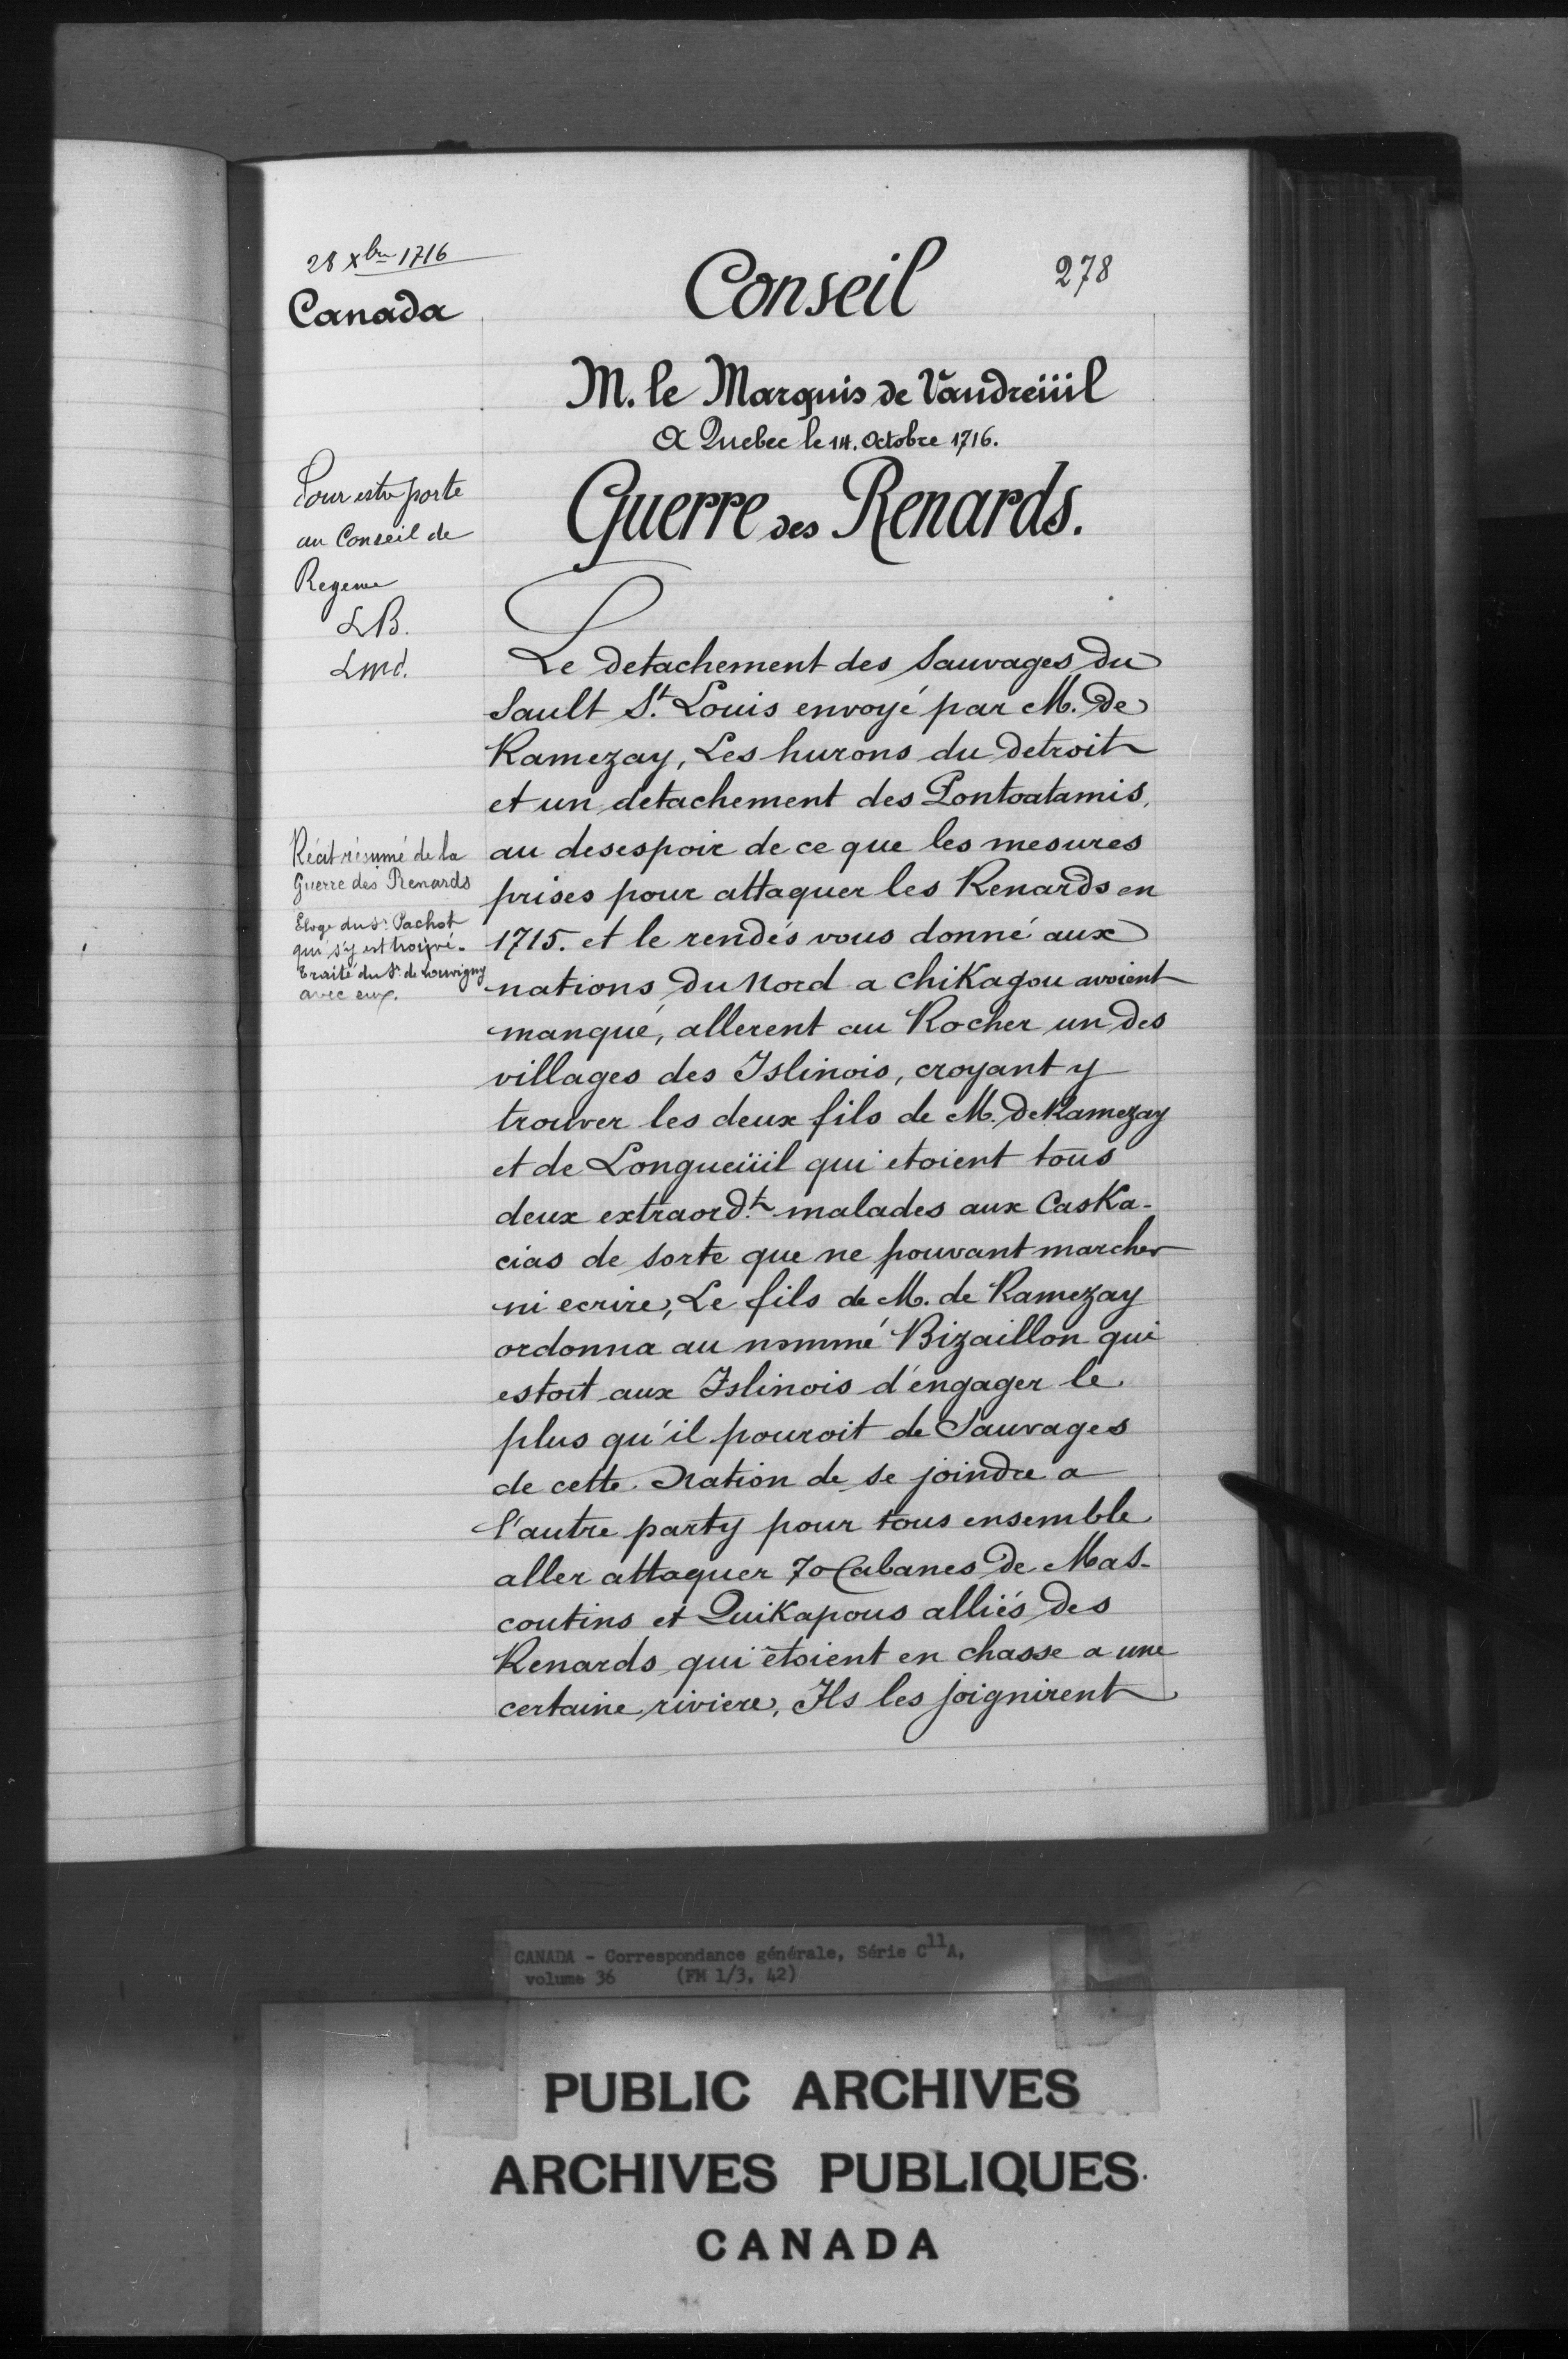 28 Xbre 1716
Canada
Conseil
278
M. le Marquis de Vaudreüil
A Quebec le 14. Octobre 1716.
Guerre des Renards.
Pour estre porte
au Conseil de
Regence
LB.
Lmd.
Récit résumé de la
Guerre des Renards
Eloge du Sr. Pachot
qui s'y est trouvé.
Traité du Sr. de Louvigny
avec eux.
Le detachement des Sauvages du
Sault St. Louis envoyé par M. De
Ramezay, Les hurons du Detroit
et un detachement des Pontoatamis,
au desespoir de ce que les mesures
prises pour attaquer les Renards en
1715. et le rendés vous donné aux
nations Du Nord a chiKagou avoient
manqué, allerent au Rocher un des
villages des Islinois, croyant y
trouver les deux fils de M. DeRamezay
et de Longueüil qui etoient tous
deux extraordt. malades aux CasKa-
cias de sorte que ne pouvant marcher
ni ecrire, Le fils de M. de Ramezay
ordonna au nommé Bizaillon qui
estoit aux Islinois d'engager le
plus qu'il pouroit de Sauvages
de cette Nation de se joindre a
l'autre party pour tous ensemble
aller attaquer 70 Cabanes De Mas-
coutins et QuiKapous alliés Des
Renards qui étoient en chasse a une
certaine riviere, Ils les joignirent
CANADA - Correspondance générale, Série C11A,
volume 36 (FM 1/3, 42)
PUBLIC ARCHIVES
ARCHIVES PUBLIQUES
CANADA